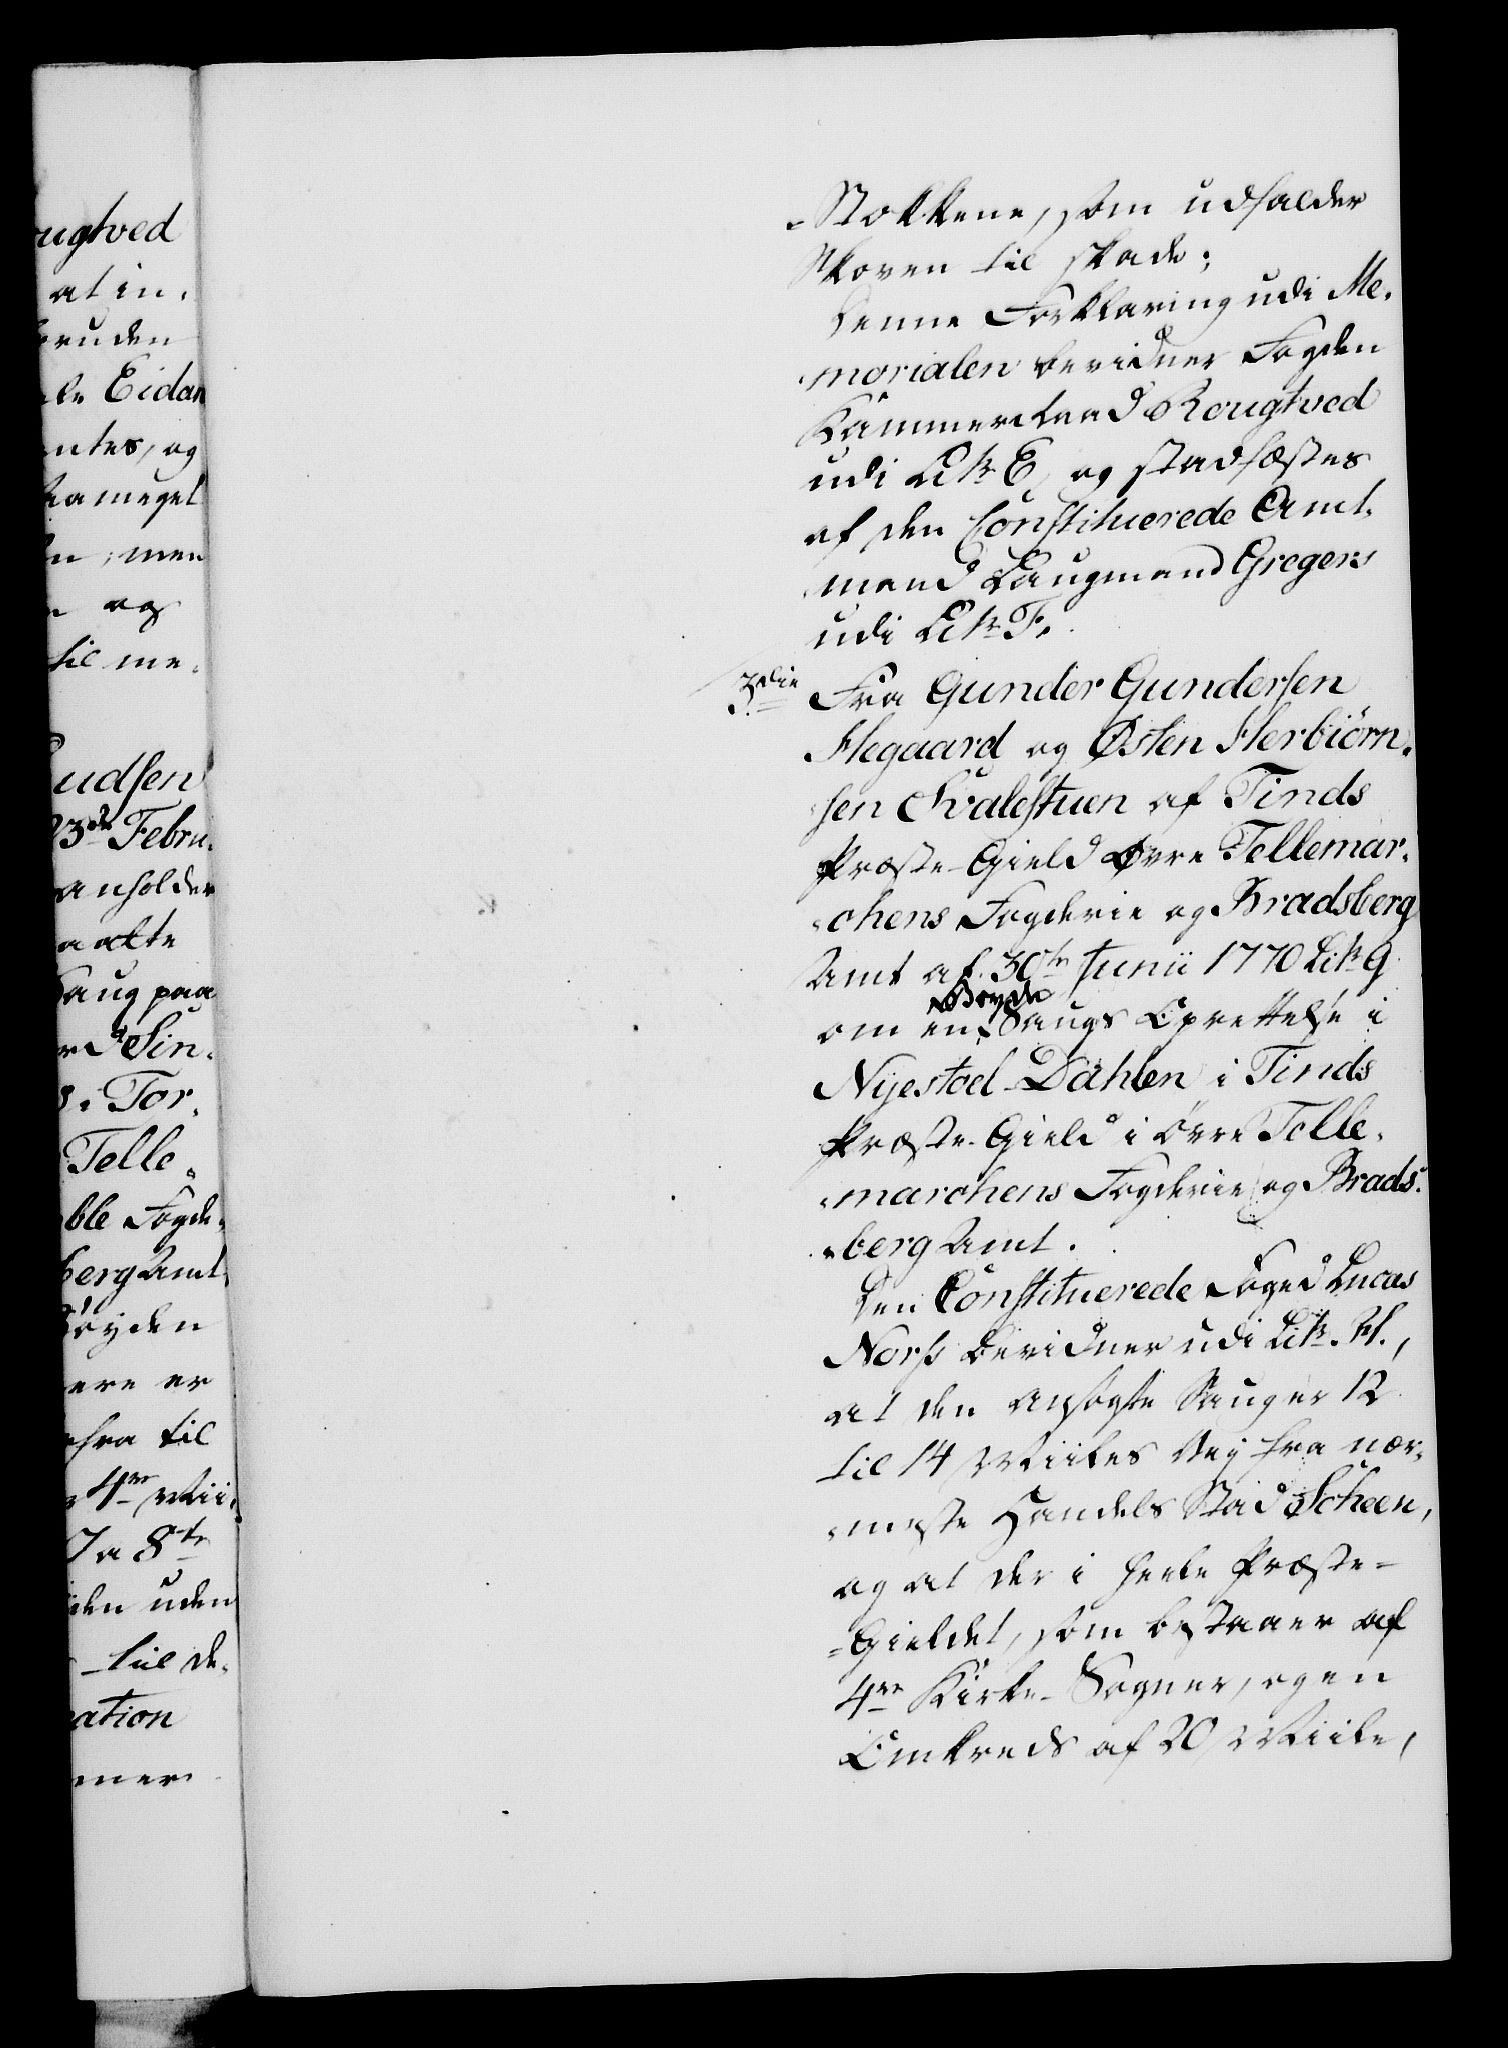 ugtved
at in-
uden
Eidan
ntes, og
saa meget
men
og
til me-
udsen
23de Febru-
anholder
maatte
Saug paa
Sin-
Tor-
Telle-
ble Fogde-
berg Amt
Bøyden
ere er
fra til
4re Mii-
7 a 8te
den uden
til de-
ation
mer
-Stokkene, som udfalder
Skoven til skade;
Denne Forklaring udi Me-
-morialen bevidner Fogden
Kammerraad Rougtved
udi Litr E, og stadfæstes
af den Constituerede Amt-
mand Laugmand Gregers
udi Litr F.
3die Fra Gunder Gundersen
Flegaard og Østen Herbiörn-
sen Svalestuen af Tinds
Præste-Gield Øvre Tellemar-
-chens Fogderie og Bradsberg
Amt af 30te Junii 1770 Litr G
Bøyde
om en Saugs Oprettelse i
Nyestoel-Dahlen i Tinds
Præste-Gield i Øvre Telle-
-marchens Fogderie og Brads-
-berg Amt.
Den Constituerede Foged Lucas
Norss bevidner udi Litr. H.,
at den ansøgte Saug er 12
til 14 Miiles Vej fra nær-
-meste Handels Stad Scheen,
og at der i heele Præste-
-Gieldet, som bestaaer af
4re Kirke-Sogner, og en
Omkreds af 20 Miile,